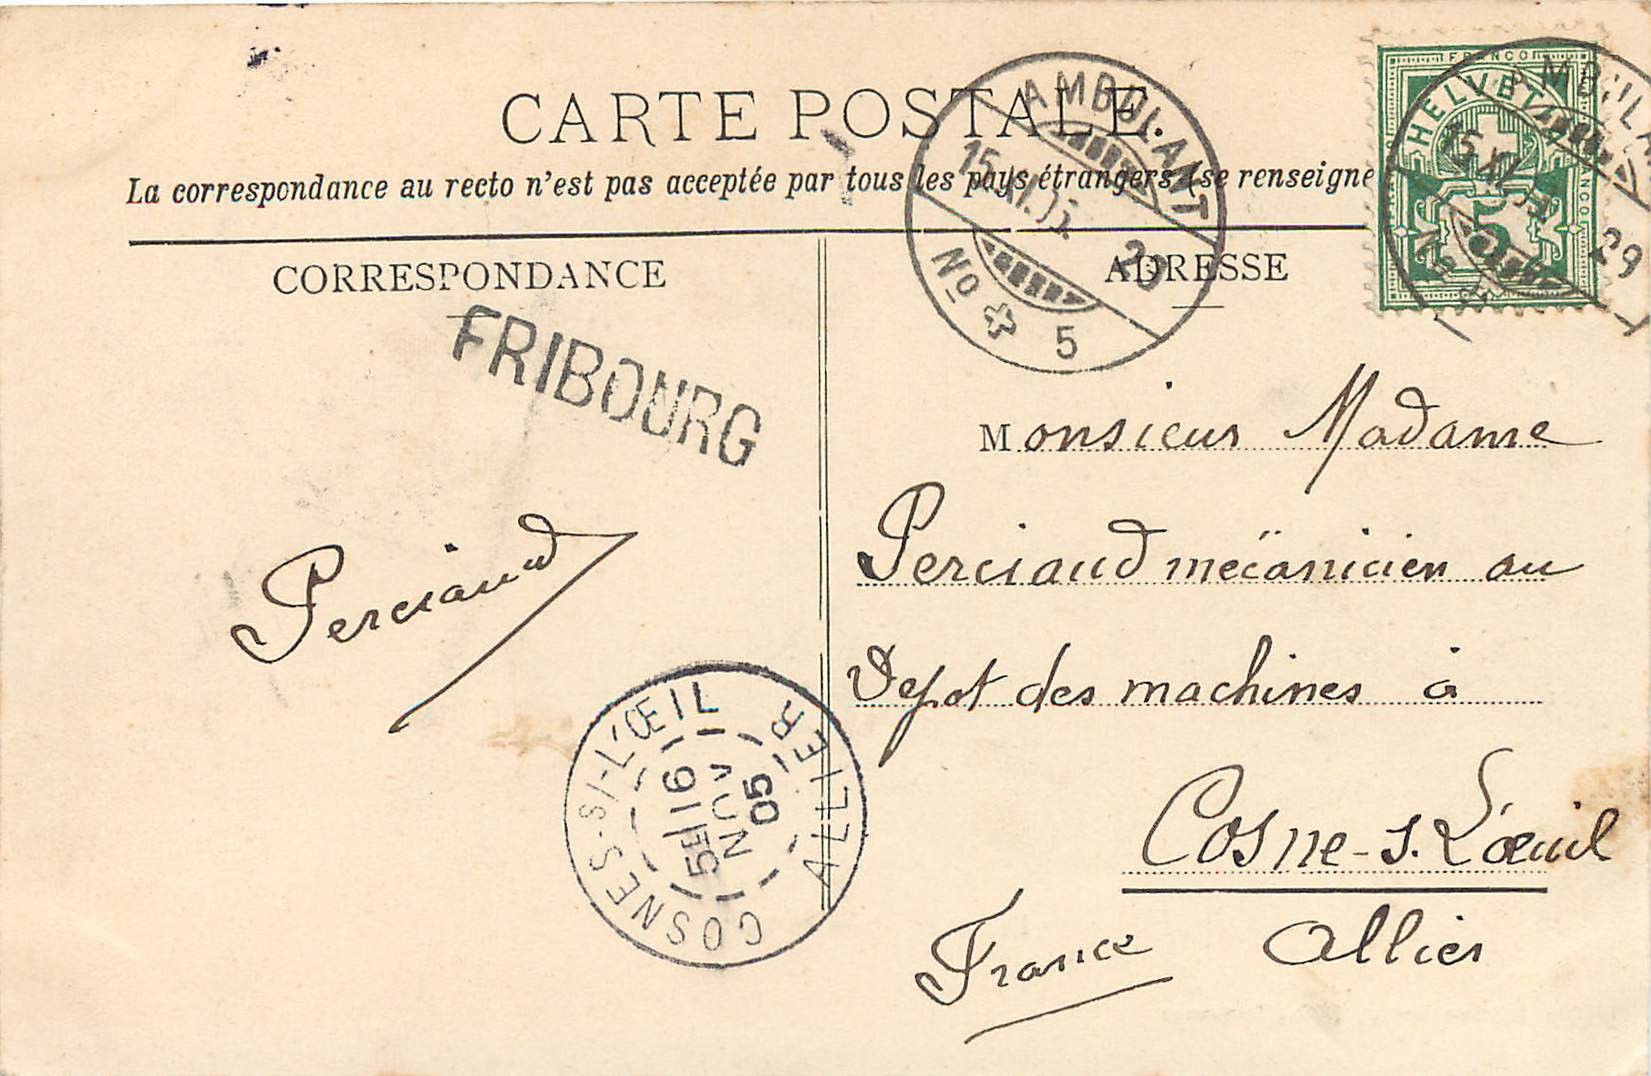 CARTE POSTALE.
La correspondance au recto n'est pas acceptée par tous les pays étrangers (se renseigne
CORRESPONDANCE
ADRESSE
AMBULANT
15.XI.05.
29
No 5
FRANCO
HELVETIA
FRANCO
5
15.XI.05
29
FRIBOURG
Monsieur Madame
Perciaud mécanicien au
Depot des machines à
Cosne-s. L'œuil
France Allier
Perciaud
COSNES-S/-L'ŒIL
ALLIER
5E/16
NOV
05